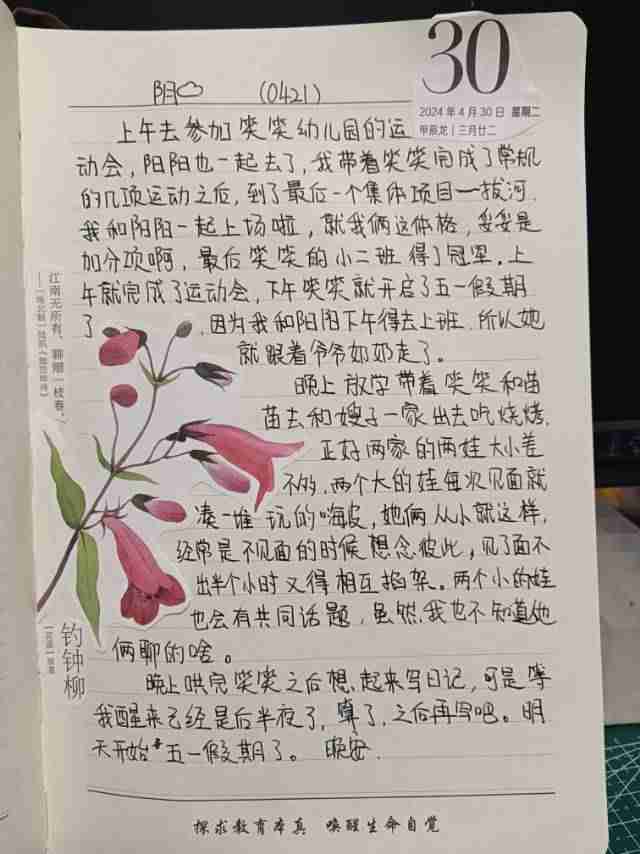 30
2024年4月30日 星期二
甲辰龙｜三月廿二
阴 (0421)
上午去参加笑笑幼儿园的运
动会，阳阳也一起去了，我带着笑笑完成了常规
的几项运动之后，到了最后一个集体项目—拔河.
我和阳阳一起上场啦，就我俩这体格，妥妥是
加分项啊，最后笑笑的小二班得了冠军。上
午就完成了运动会，下午笑笑就开启了五一假期
了，因为我和阳阳下午得去上班，所以她
就跟着爷爷奶奶走了。
晚上放学带着笑笑和苗
苗去和嫂子一家出去吃烧烤，
正好两家的两娃大小差
不多，两个大的娃每次见面就
凑一堆玩的嗨皮，她俩从小就这样，
经常是不见面的时候想念彼此，见了面不
出半个小时又得相互掐架。两个小的娃
也会有共同话题，虽然我也不知道他
俩聊的啥。
晚上哄完笑笑之后想起来写日记，可是等
我醒来已经是后半夜了，算了，之后再写吧。明
天开始五一假期了。 晚安.
江南无所有，聊赠一枝春。
钓钟柳
探求教育本真 唤醒生命自觉